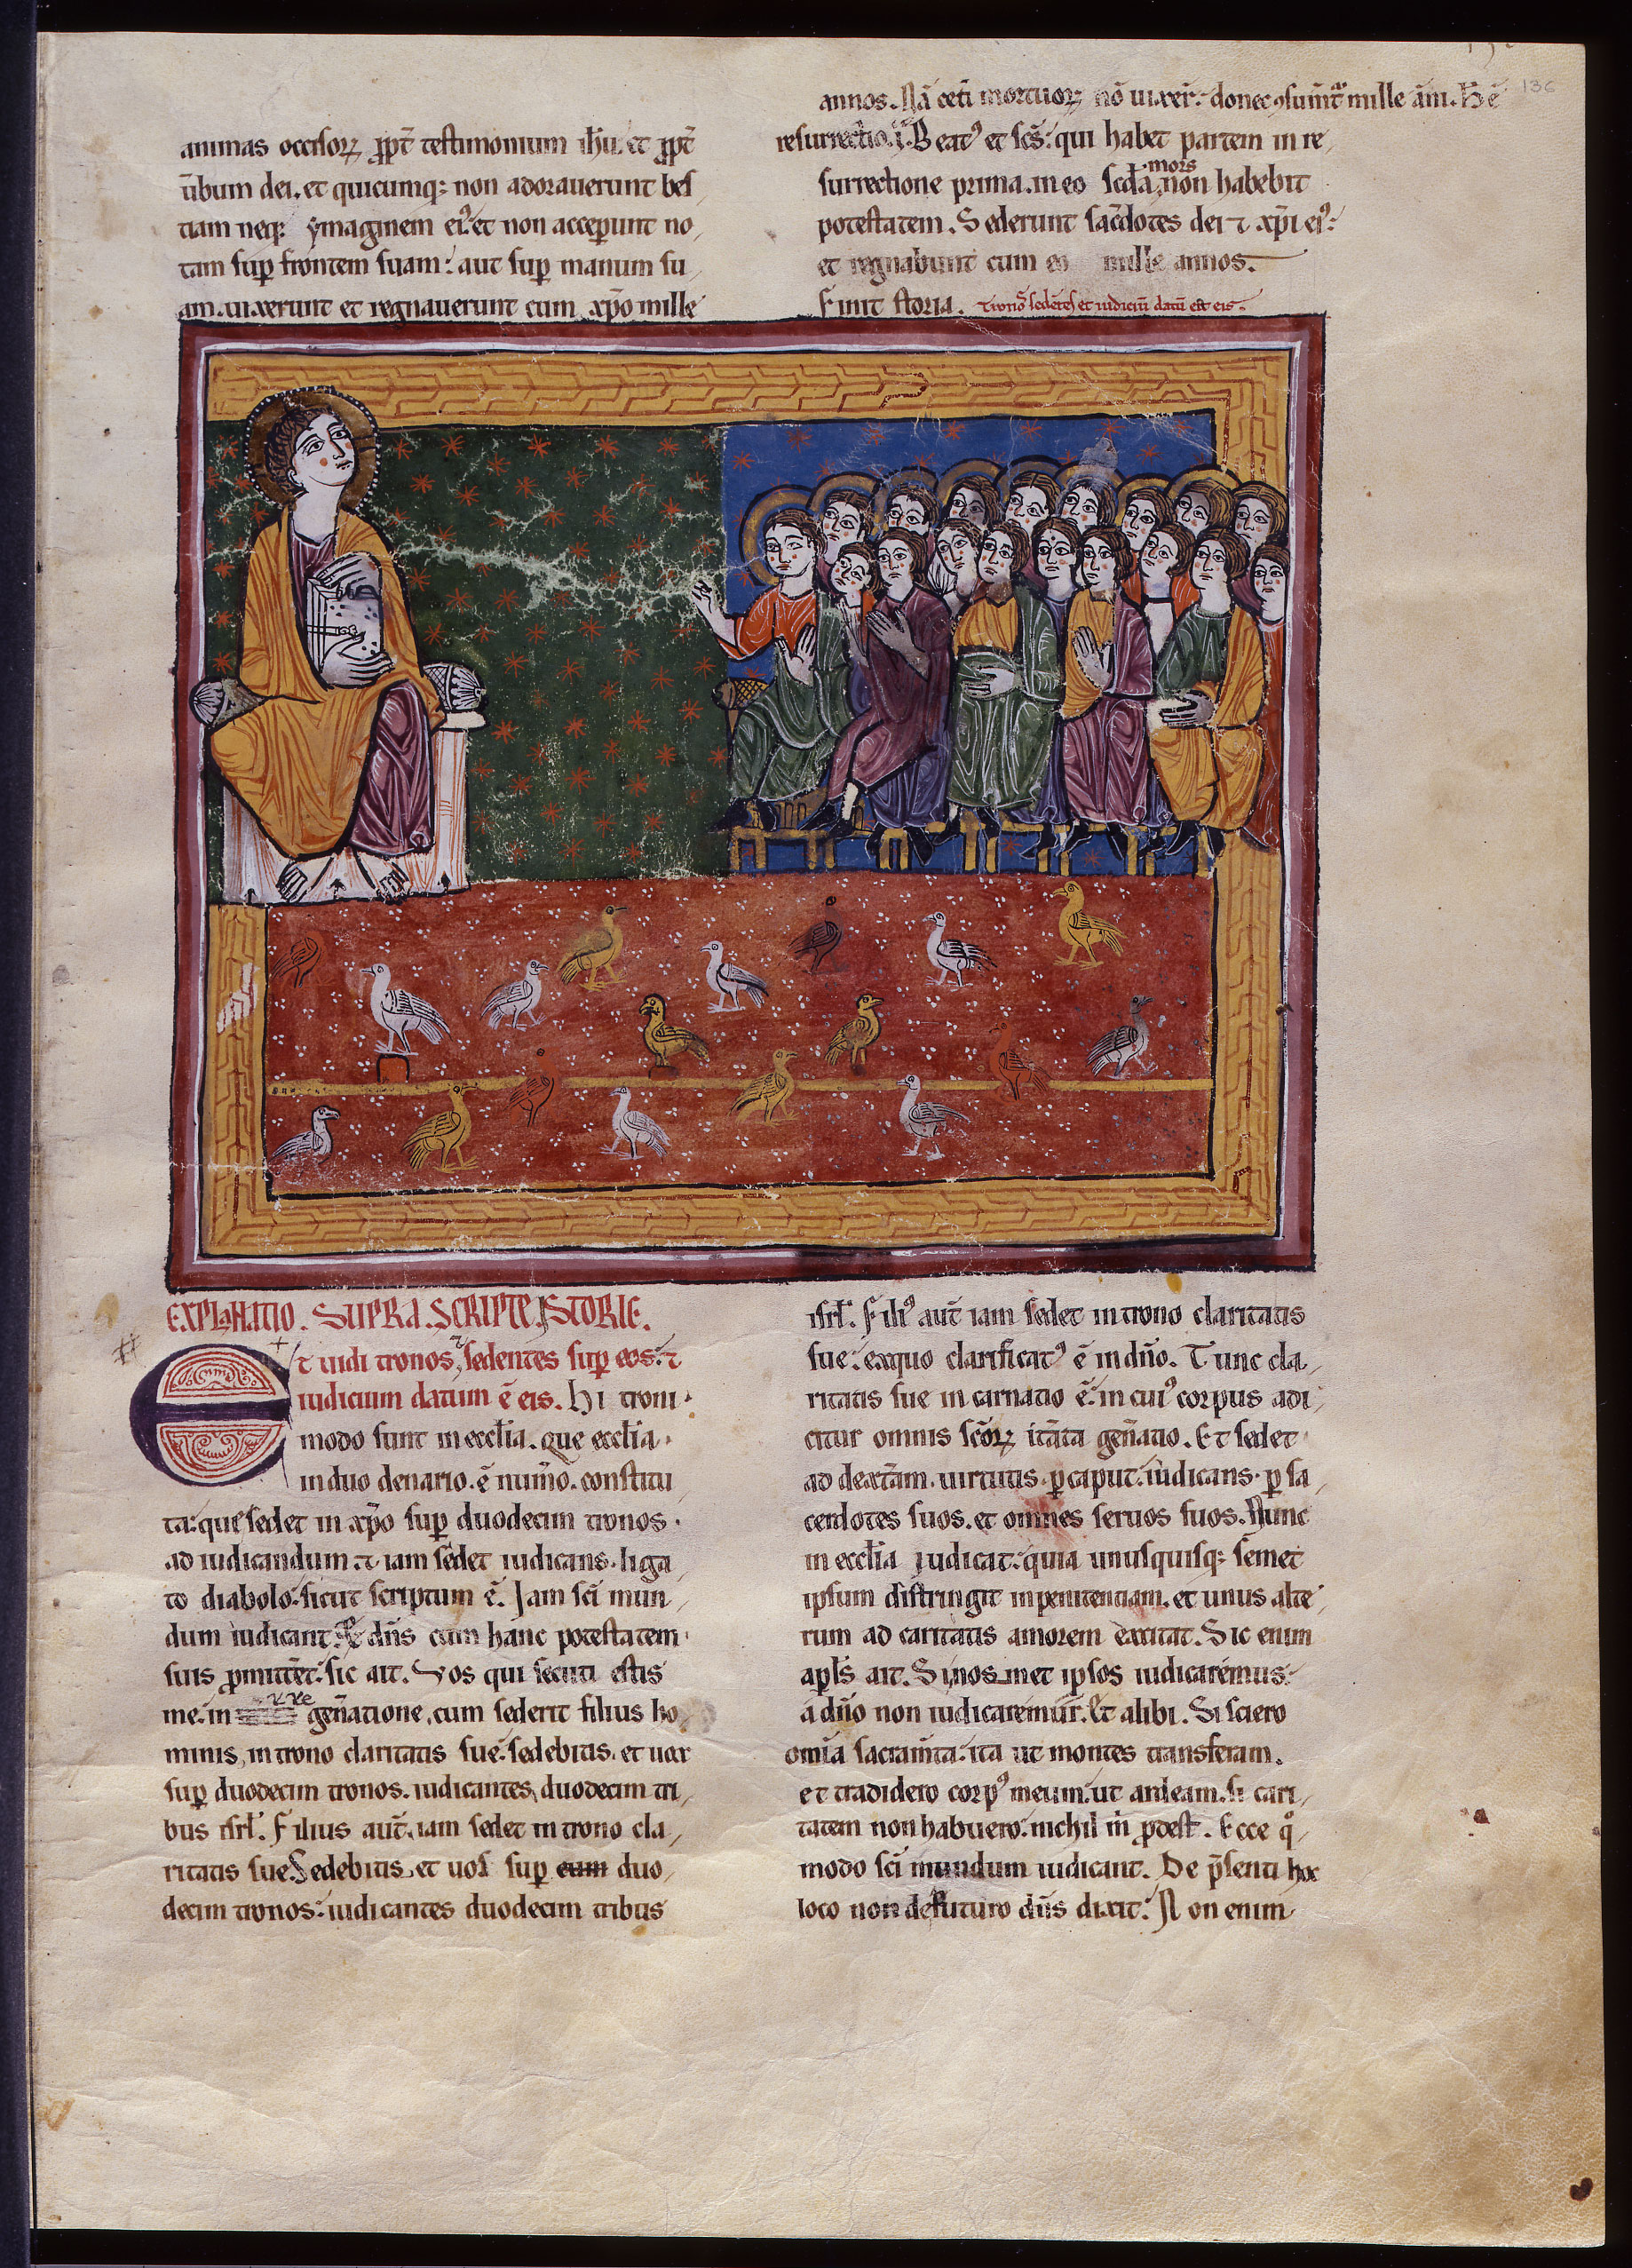 animas occisoꝝ ꝓpt̄ testimonium ih̄u. et ꝓpt̄
ūbum dei. et quicumq; non adorauerunt bes
tiam neq; ymaginem ei᾿. et non acceperunt no,
tam suꝑ frontem suam: aut suꝑ manum su,
am. uixerunt et regnauerunt cum xp̄o mille
annos. Nā ceti mortuoꝝ nō uixer̄. donec ꝯsum̄t mille āni. H̄ ē
resurrectio .i. Beat᾿ et sc̄s: qui habet partem in re,
surrectione prima. in eo scd̄a mors non habebit
potestatem. Sederunt sac̄dotes dei ⁊ xp̄i ei᾿:
et regnabunt cum eo mille annos.
Finit storia. Tronos sedētes et iudiciū datū est eis.
136
EXPLANATIO. SUPRA. SCRIPTE ISTORIE.
Et uidi tronos, ⁊ sedentes suꝑ eos: ⁊
iudicium datum ē eis. Hi troni
modo sunt in eccl̄ia. que eccl̄ia.
in duo denario. ē num̄o. constitu,
ta: que sedet in xp̄o suꝑ duodecim tronos.
ad iudicandum. ⁊ iam sedet iudicans. liga
to diabolo: sicut scriptum ē. Iam sc̄i mun,
dum iudicant. dn̄s cum hanc potestatem
suis ꝓmittēt: sic ait. Vos qui secuti estis
me. in gen̄atione, cum sederit filius ho,
minis, in trono claritatis sue: sedebitis. et uos
suꝑ duodecim tronos. iudicantes, duodecim tri,
bus isrl̄. Filius aut̄. iam sedet in trono cla,
ritatis sue. Sedebitis et uos suꝑ eum duo,
decim tronos: iudicantes duodecim tribus
isrl̄. Fili᾿ aut̄ iam sedet in trono claritatis
sue: exquo clarificat᾿ ē in dn̄o. Tunc cla,
ritatis sue in carnatio ē. in cui᾿ corpus adi,
citur omnis sc̄oꝝ itāta gen̄atio. Et sedet
ad dext̄am. uirtutis. ꝑ caput. iudicans. ꝑ sa,
cerdotes suos. et omnes seruos suos. Nunc
in eccl̄ia iudicat: quia unusquisq; semet
ipsum distringit in penitentiam. et unus alte,
rum ad caritatis amorem excitat. Sic enim
apl̄s ait. Si nos met ipsos iudicaremus:
a dn̄o non iudicaremur. Et alibi. Si sciero
omīa sacram̄ta: ita ut montes transferam.
et tradidero corp᾿ meum. ut ardeam. si cari,
tatem non habuero: nichil m̄ ꝓdest. Ecce q̊,
modo sc̄i mundum iudicant. De p̄senti hoc
loco non de futuro dn̄s dixit: Non enim